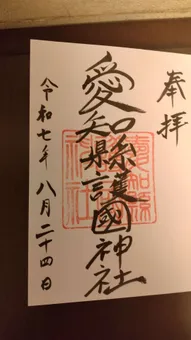 奉拝
愛知縣護國神社
令和七年 八月二十四日